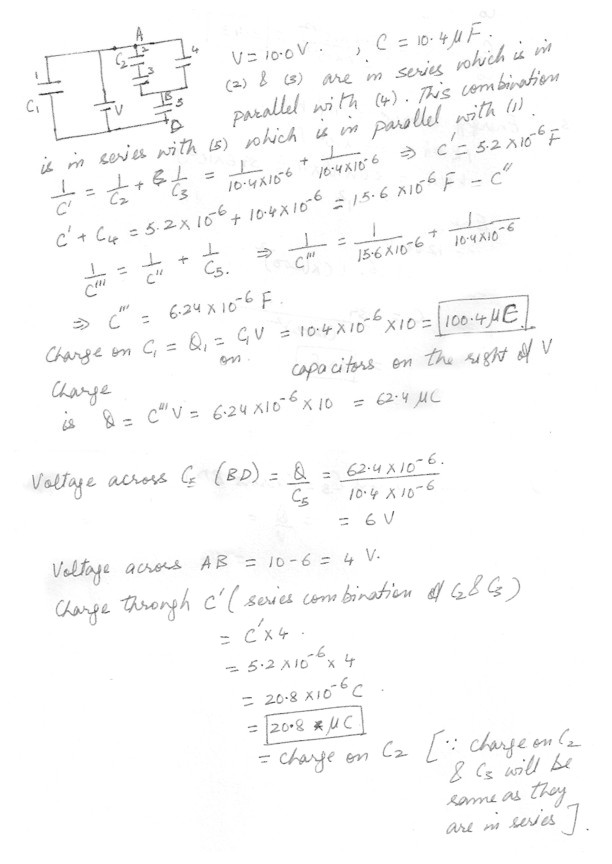 A
C₂ 2
3
4
1
C₁
V
B
5
D
V = 10.0 V . , C = 10.4 μF.
(2) & (3) are in series which is in
parallel with (4). This combination
is in series with (5) which is in parallel with (1).
1/C' = 1/C₂ + 1/C₃ = 1/10.4×10-6 + 1/10.4×10-6 ⇒ C' = 5.2×10⁻⁶ F
C' + C₄ = 5.2×10⁻⁶ + 10.4×10⁻⁶ = 15.6 ×10⁻⁶ F = C''
1/C''' = 1/C'' + 1/C₅. ⇒ 1/C''' = 1/15.6×10-6 + 1/10.4×10-6
⇒ C''' = 6.24×10⁻⁶ F.
Charge on C₁ = Q₁ = C₁V = 10.4×10⁻⁶×10 = 100.4 μC
Charge on capacitors on the right of V
is Q = C'''V = 6.24×10⁻⁶×10 = 62.4 μC
Voltage across C₅ (BD) = Q/C₅ = 62.4×10⁻⁶/10.4×10-6
= 6 V
Voltage across AB = 10-6 = 4 V.
Charge through C' (series combination of C₂ & C₃)
= C'×4.
= 5.2×10⁻⁶×4
= 20.8×10⁻⁶ C.
= 20.8 μC
= charge on C₂ [∵ charge on C₂
& C₃ will be
same as they
are in series].